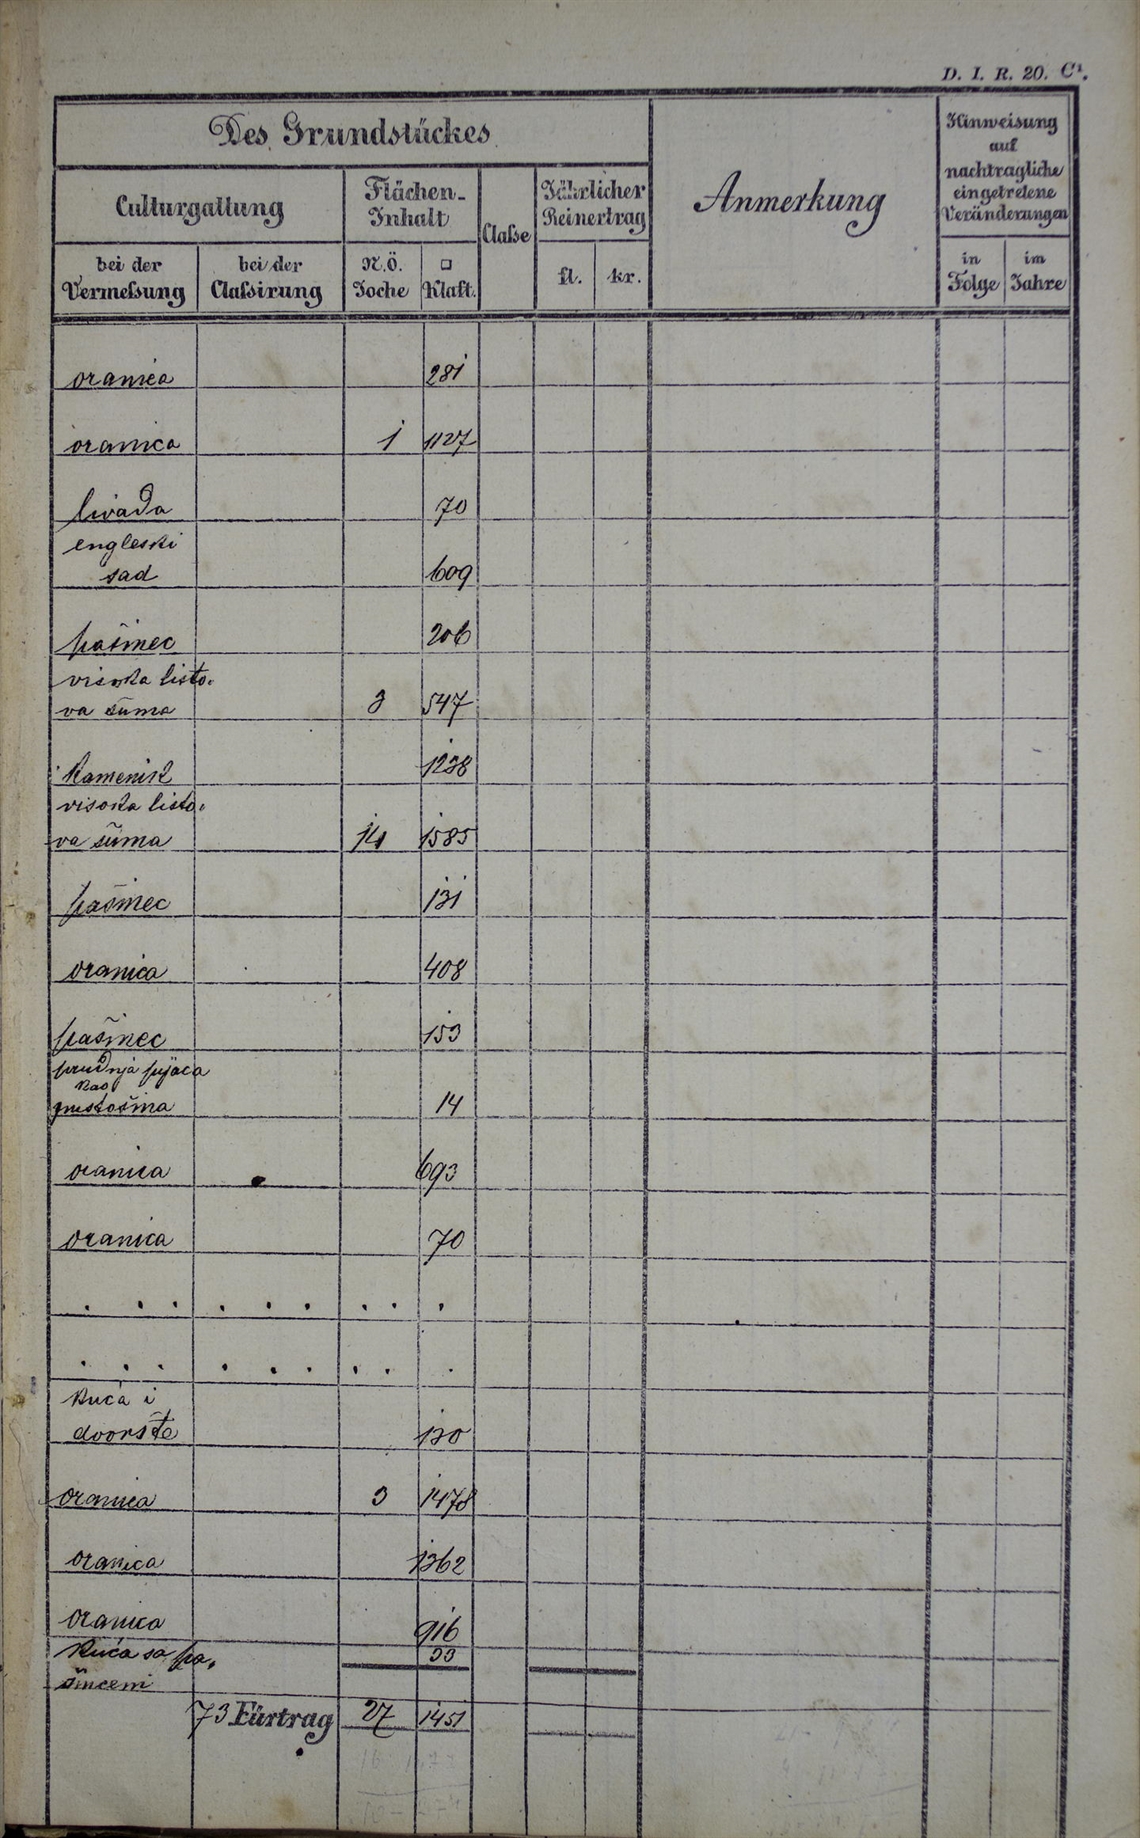 D. I. R. 20. C¹.
Des Grundstückes
Anmerkung
Hinweisung
auf
nachtragliche
eingetretene
Veränderungen
Culturgattung
Flächen-
Inhalt
Claße
Jährlicher
Reinertrag
bei der
Vermeßung
bei der
Claßirung
N.Ö.
Joche
□
Klaft.
fl.
kr.
in
Folge
im
Jahre
oranica 281
oranica 1 1127
livada 70
engleski
sad 609
pašinec 206
visoka listo-
va šuma 3 547
Kamenik 1238
visoka listo-
va šuma 14 1585
pašinec 131
oranica 408
pašinec 153
kao
pustošina 14
oranica 693
oranica 70
. . . . . . . . .
. . . . . . . . .
Kuća i
dvorište 130
oranica 3 1478
oranica 1362
oranica 916
Kuća sa pa- 33
šincem
73 Fürtrag 27 1451